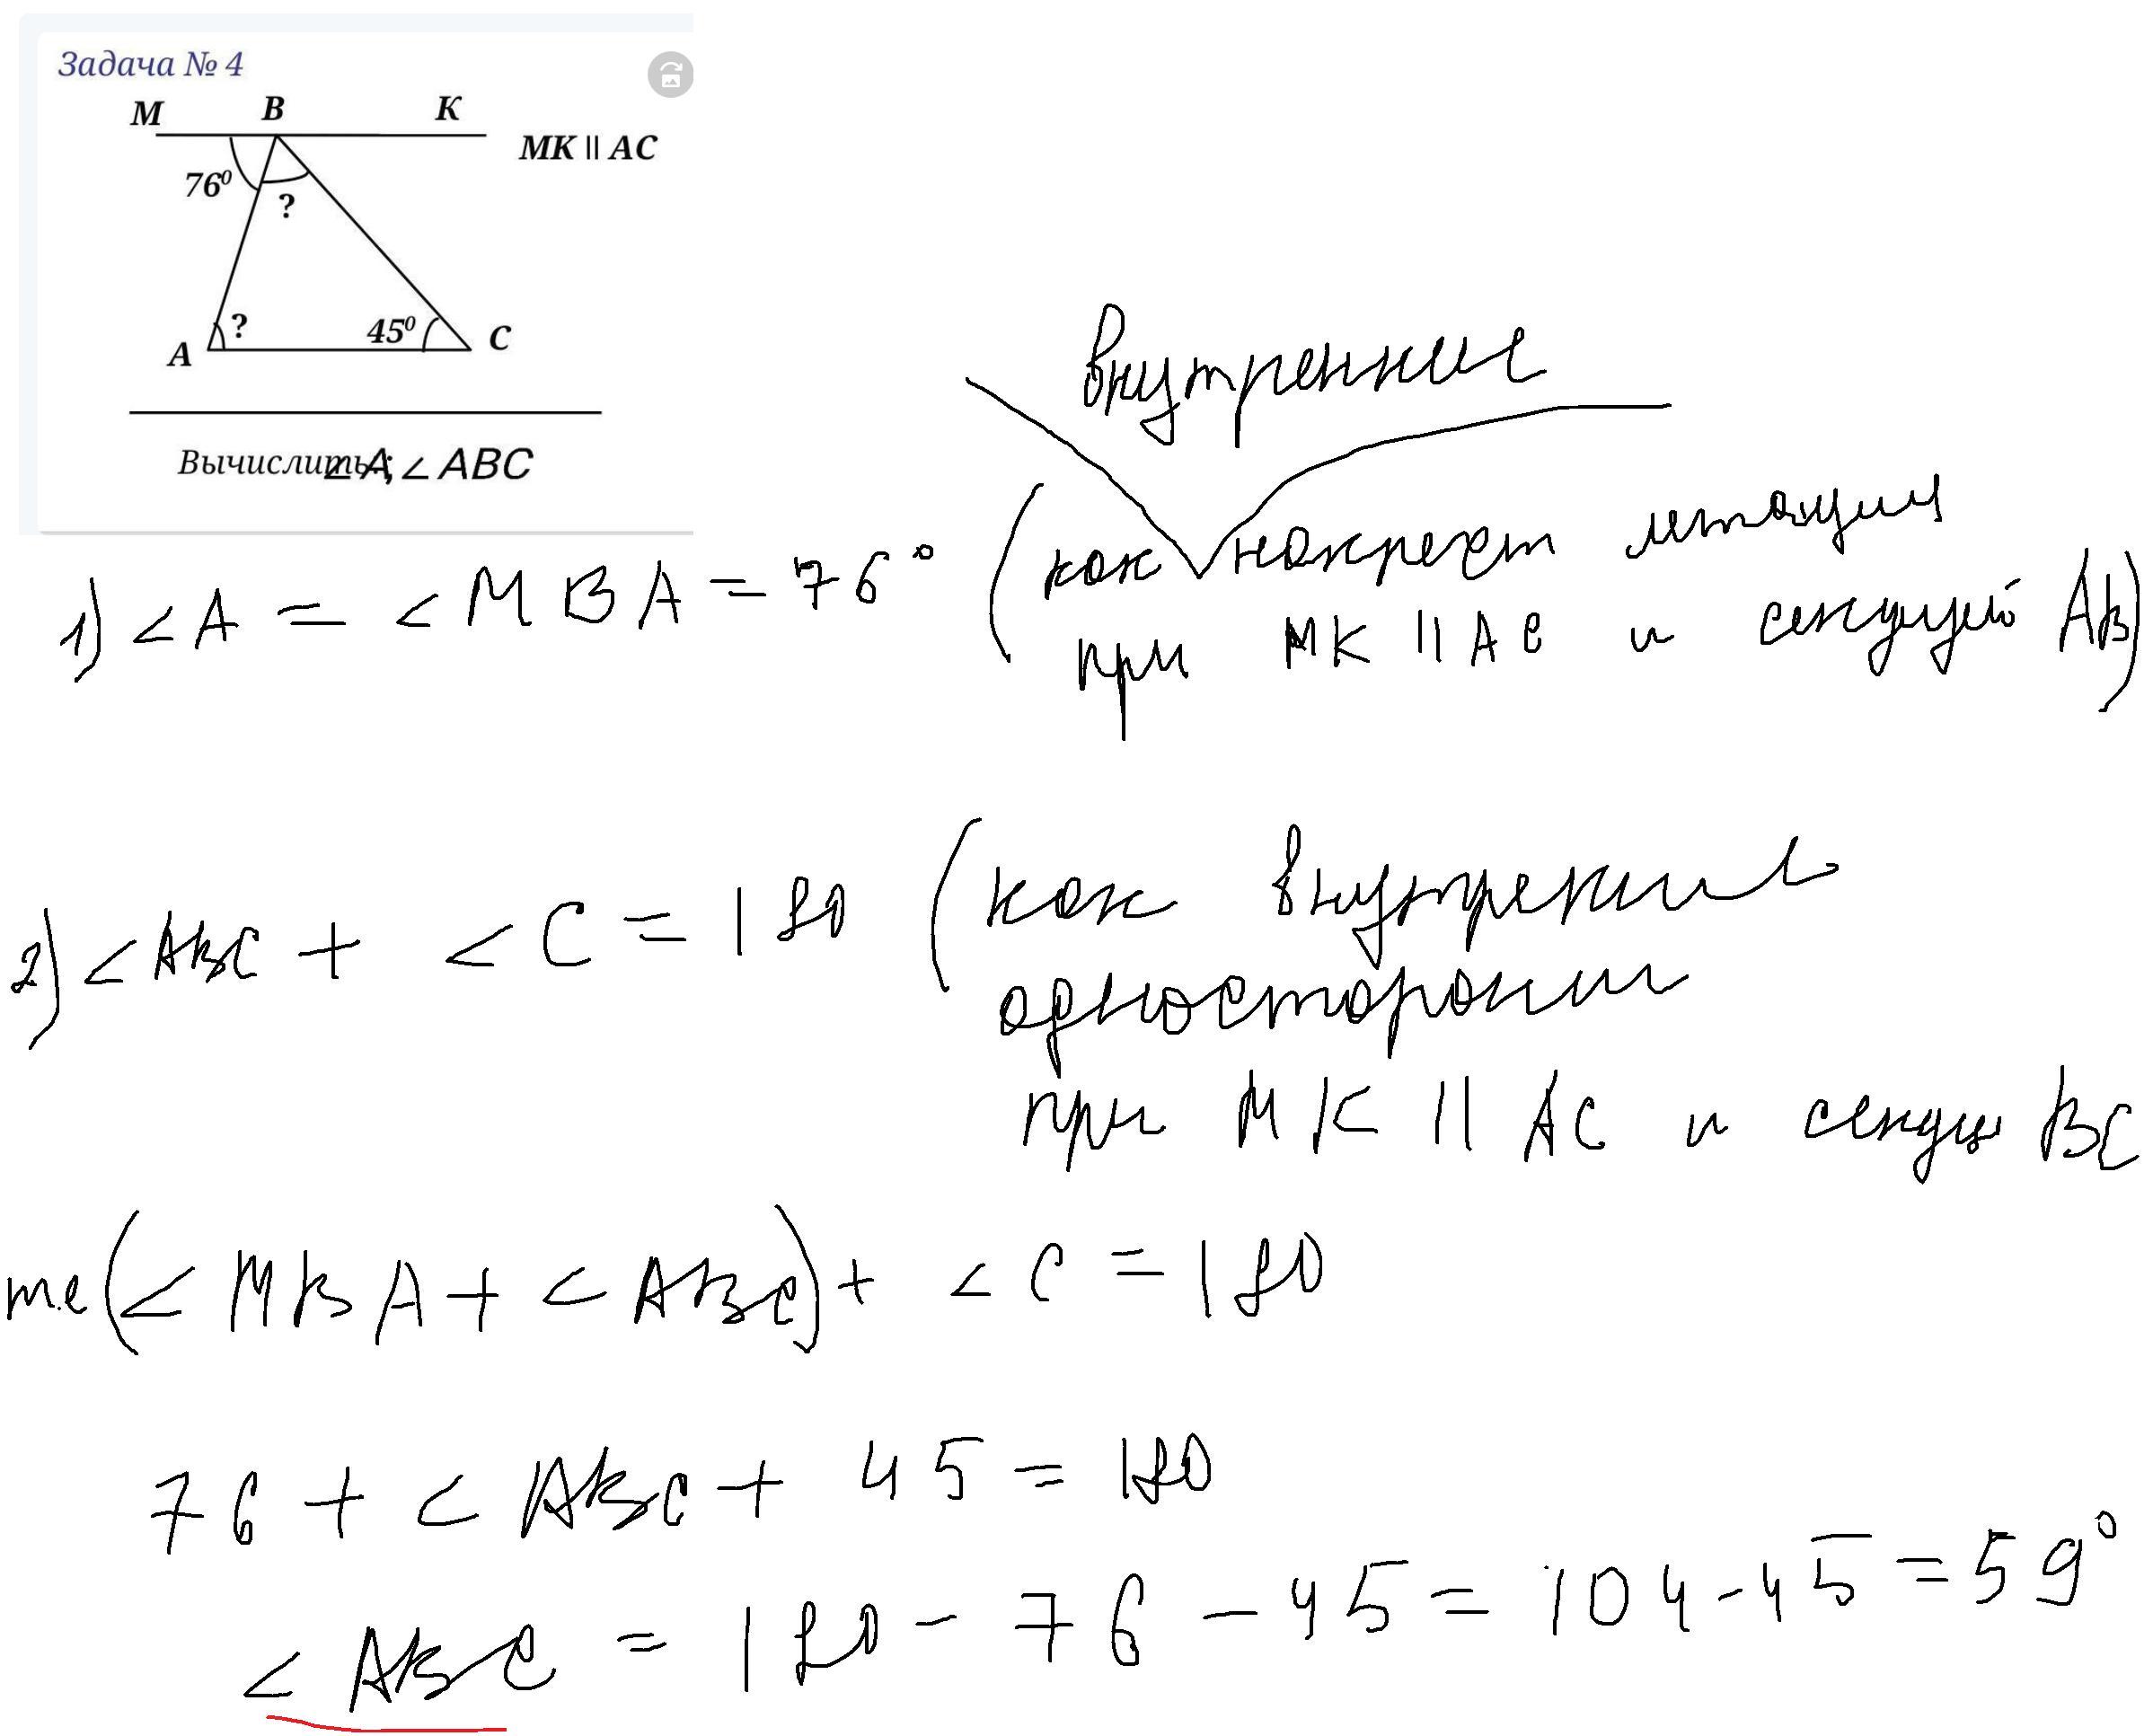 Задача № 4
M B K
MK || AC
76⁰
?
?
45⁰
A C
Вычислить: ∠A; ∠ABC
внутренние
1) <A = <MBA = 76° (как накрест
при MK || AC и секущей AB)
2) <ABC + <C = 180 (как внутрение
односторонии
при MK || AC и секущ BC
т.е (<MBA + <ABC) + <C = 180
76 + <ABC + 45 = 180
<ABC = 180 - 76 - 45 = 104 - 45 = 59°